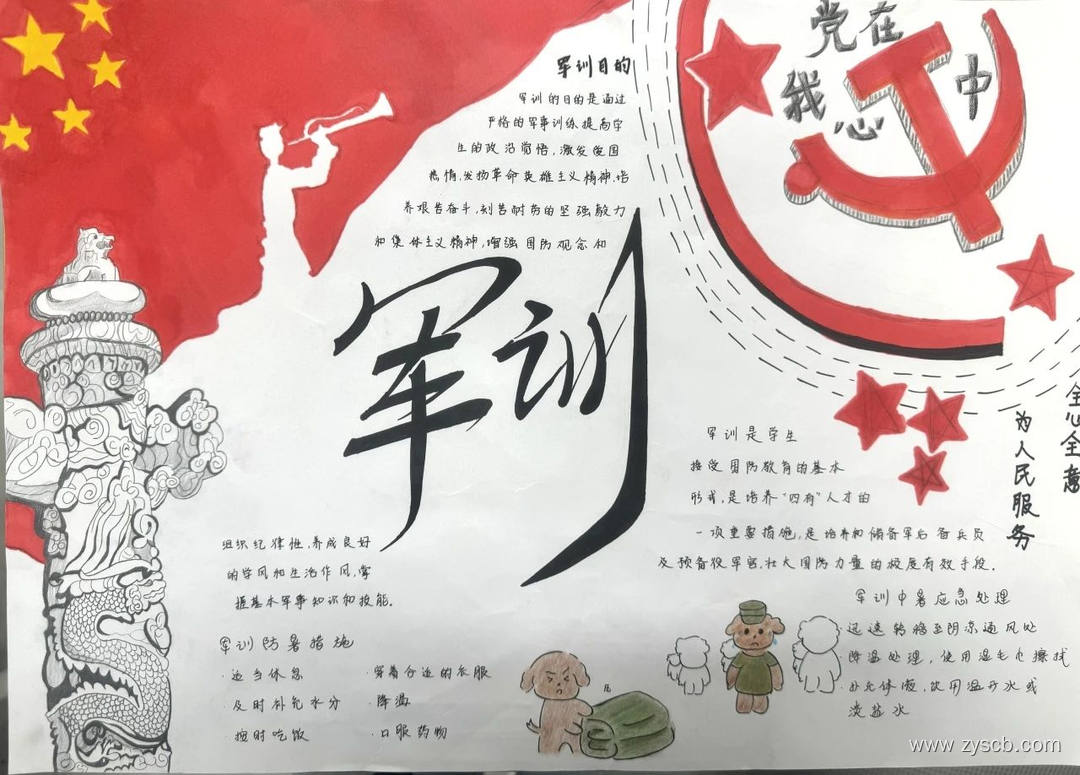 党在
我心中
军训目的
军训的目的是通过
严格的军事训练提高学
生的政治觉悟,激发爱国
热情,发扬革命英雄主义精神,培
养艰苦奋斗,刻苦耐劳的坚强毅力
和集体主义精神,增强国防观念和
军训
组织纪律性,养成良好
的学风和生活作风,掌
握基本军事知识和技能。
军训防暑措施
·适当休息
·及时补充水分
·按时吃饭
·穿着合适的衣服
·降温
·口服药物
全心全意
为人民服务
军训是学生
接受国防教育的基本
形式,是培养“四有”人才的
一项重要措施,是培养和储备军后备兵员
及预备役军官,壮大国防力量的极度有效手段。
军训中暑应急处理
迅速转移至阴凉通风处
降温处理,使用湿毛巾擦拭
补充体液,饮用温开水或
淡盐水
www.zyscb.com